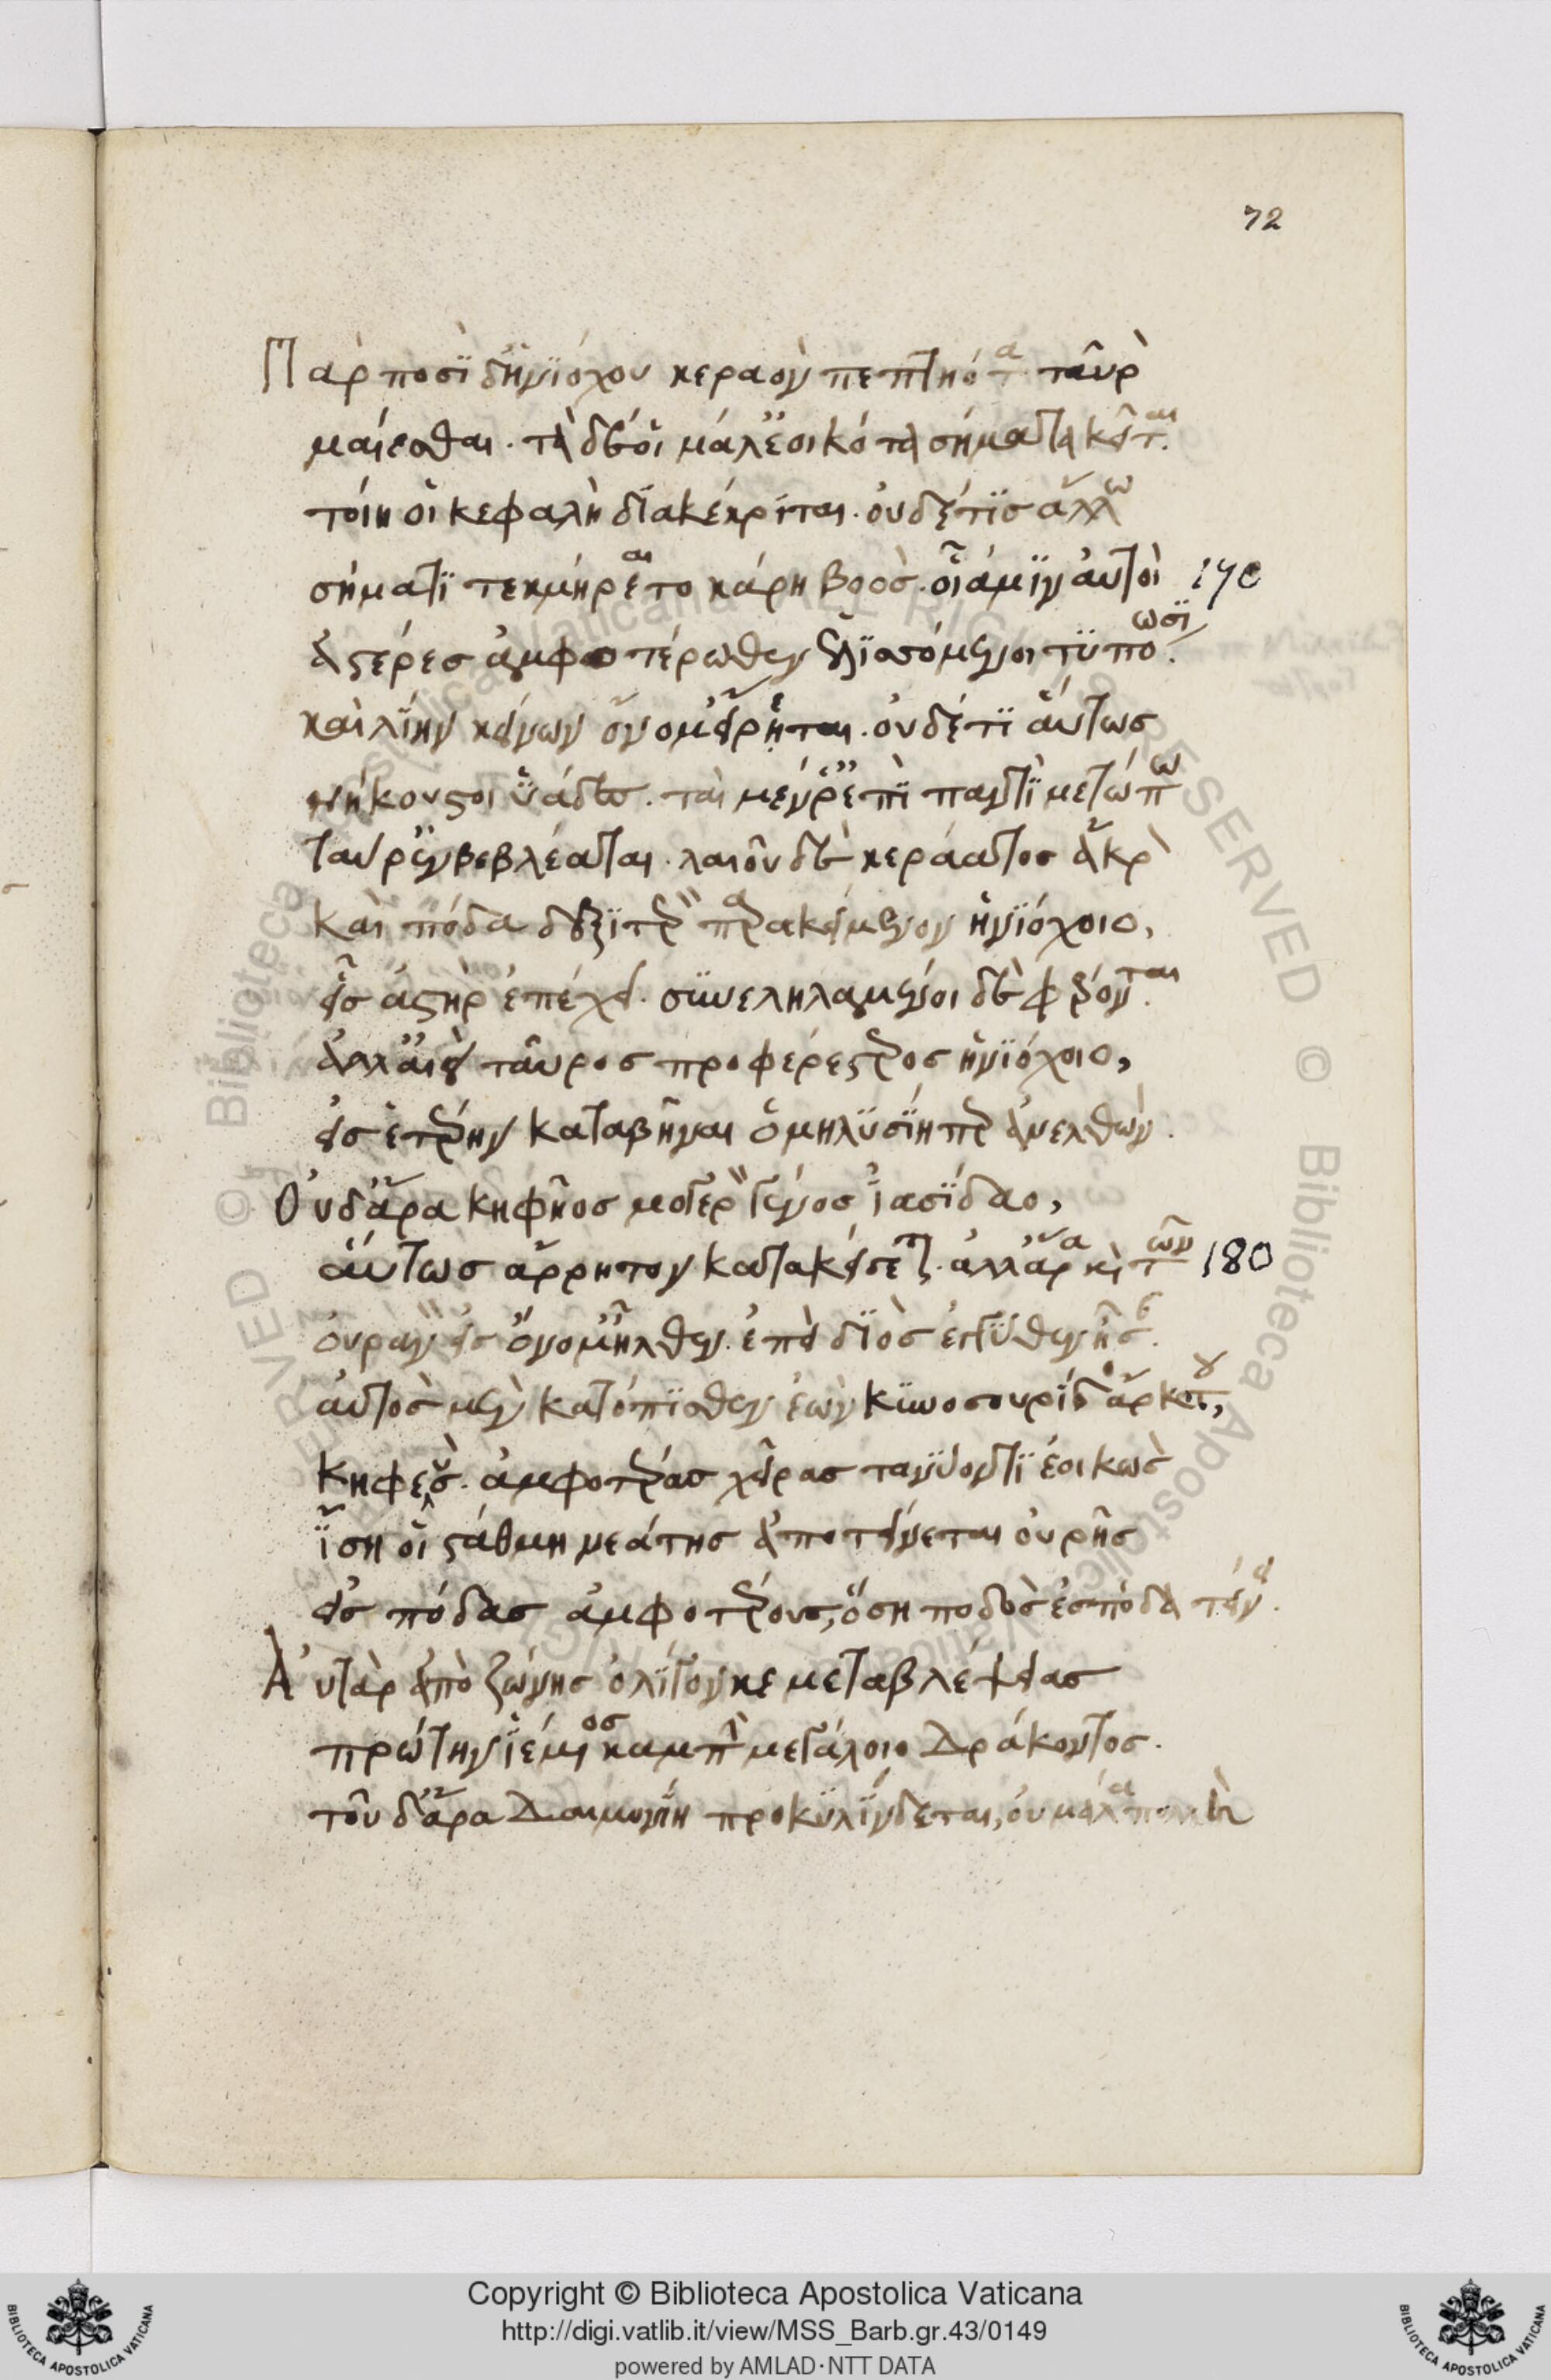 72
Πὰρ ποσὶ δ' ἡνιόχου κεραὸν πεπτηότα ταῦρον
μαίεσθαι. τὰ δέ οἱ μάλ' ἐοικότα σήματα κεῖται.
τοίη οἱ κεφαλὴ διακέκριται. οὐδέ τις ἄλλω
σήματι τεκμήραιτο κάρη βοὸς. οἷά μιν αὐτοὶ 170
ἀστέρες ἀμφοτέρωθεν ἑλισσόμενοι τυπόωσι.
καὶ λίην κείνων ὄνομ' εἴρηται. οὐδέ τι αὔτως
νήκουστοι ὑάδες. ταὶ μέν ῥ' ἐπὶ παντὶ μετώπω
ταύρου βεβλέαται. λαιοῦ δὲ κεράατος ἄκρον
καὶ πόδα δεξιτερὸν παρακείμενον ἡνιόχοιο,
εἷς ἀστὴρ ἐπέχει. συνεληλαμένοι δὲ φέρονται.
ἀλλ' αἰεὶ ταῦρος προφερέστερος ἡνιόχοιο,
εἰς ἑτέρην καταβῆναι ὁμηλυσίη περ ἀνελθών.
Οὐδ' ἄρα κηφῆος μογερὸν γένος ἰασίδαο,
αὔτως ἄρρητον κατακείσεται. ἀλλ' ἄρα καὶ τῶν 180
οὐρανὸν εἰς ὄνομ' ἦλθεν. ἐπεὶ διὸς ἐγγύθεν ἦσαν.
αὐτὸς μὲν κατόπισθεν ἐὼν κυνοσουρίδος ἄρκτου,
κηφεὺς. ἀμφοτέρας χεῖρας τανύοντι ἐοικὼς
ἴση οἱ στάθμη νεάτης ἀποτείνεται οὐρῆς
εἰς πόδας ἀμφοτέρους, ὅση ποδὸς ἐς πόδα τείνει.
Αὐτὰρ ἀπὸ ζώνης ὀλίγον κε μεταβλέψειας
πρώτην ἱέμενος καμπὴν μεγάλοιο Δράκοντος.
τοῦ δ' ἄρα Δαιμονίη προκυλίνδεται, οὐ μάλα πολλὴ
Copyright © Biblioteca Apostolica Vaticana
http://digi.vatlib.it/view/MSS_Barb.gr.43/0149
powered by AMLAD·NTT DATA
BIBLIOTECA APOSTOLICA VATICANA
BIBLIOTECA APOSTOLICA VATICANA